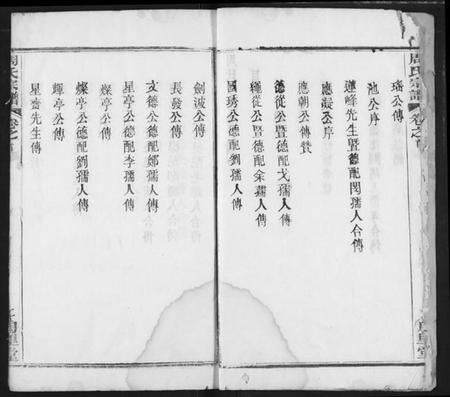 周氏宗譜 卷之首
瑤公傳
池公序
蓮峰先生暨德配閔孺人合傳
應凝公序
應朝公傳贊
德從公暨德配戈孺人傳
繩從公暨德配余孺人傳
國琇公德配劉孺人傳
劍波公傳
長發公傳
文德公德配鄭孺人傳
星亭公德配李孺人傳
燦亭公傳
燦亭公德配劉孺人傳
輝亭公傳
星齋先生傳
周氏宗譜 卷之首